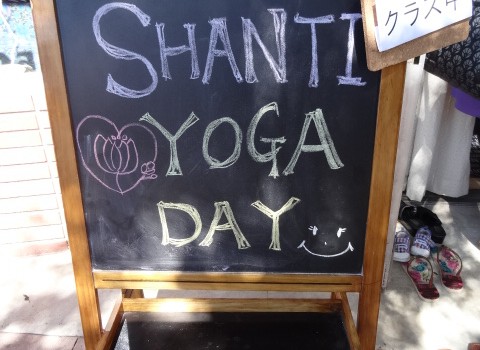 SHANTI
YOGA
DAY
クラス中